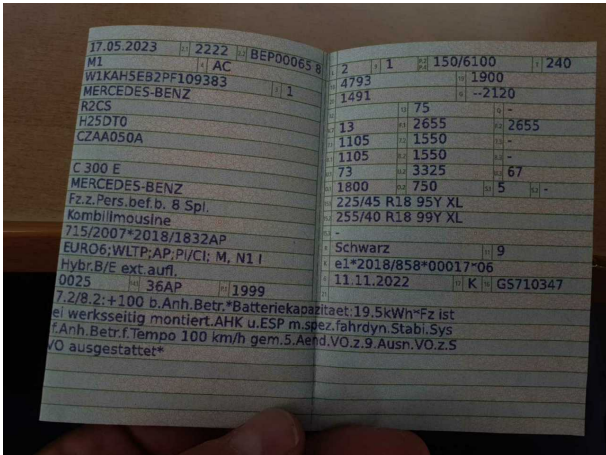 17.05.2023 2222 BEP00065 8
M1 AC
W1KAH5EB2PF109383 1
MERCEDES-BENZ
R2CS
H25DT0
CZAA050A
C 300 E
MERCEDES-BENZ
Fz.z.Pers.bef.b. 8 Spl.
Kombilimousine
715/2007*2018/1832AP
EURO6;WLTP;AP;PI/CI; M, N1 I
Hybr.B/E ext.aufl.
0025 36AP 1999
2 1 150/6100 240
4793 1900
1491 --2120
75 -
13 2655 2655
1105 1550 -
1105 1550 -
73 3325 67
1800 750 5 -
225/45 R18 95Y XL
255/40 R18 99Y XL
-
Schwarz 9
e1*2018/858*00017*06
11.11.2022 K GS710347
7.2/8.2:+100 b.Anh.Betr.*Batteriekapazitaet:19.5kWh*Fz ist
ei werksseitig montiert.AHK u.ESP m.spez.fahrdyn.Stabi.Sys
f.Anh.Betr.f.Tempo 100 km/h gem.5.Aend.VO.z.9.Ausn.VO.z.S
VO ausgestattet*